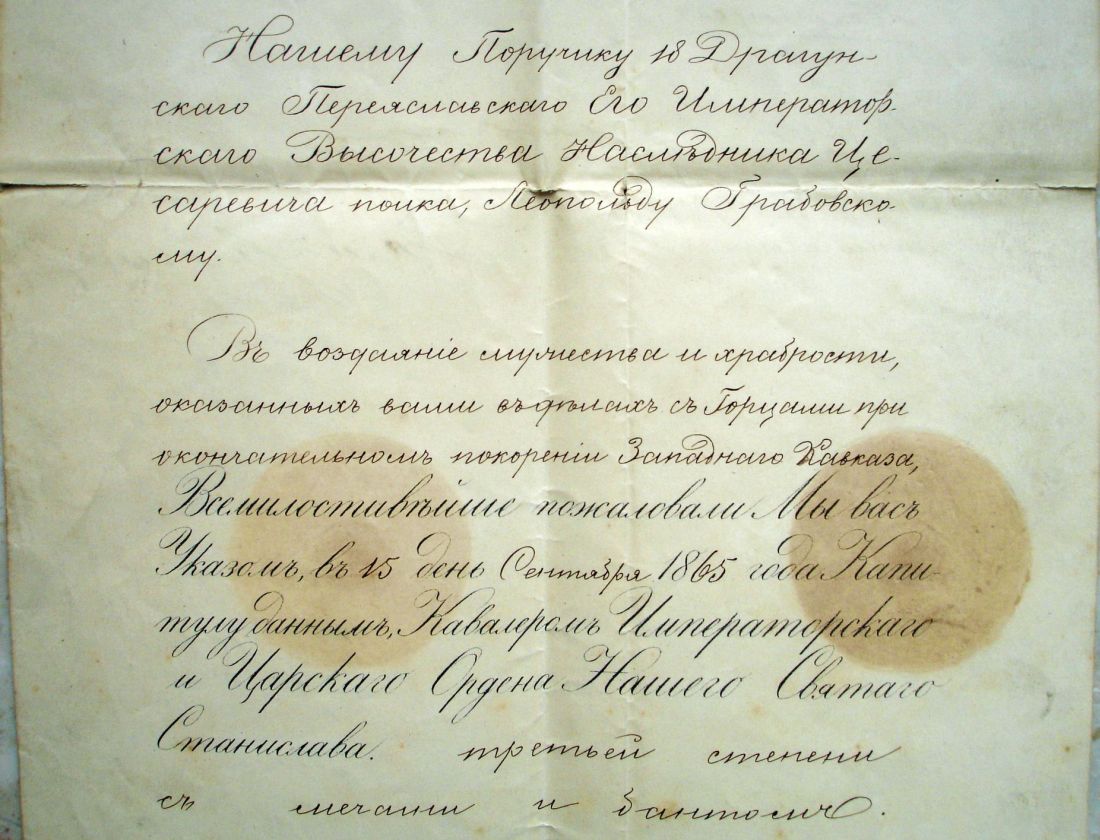 Нашему Поручику 18 Драгун-
скаго Переяславскаго Его Император-
скаго Высочества Наслѣдника Це-
саревича полка, Леопольду Грабовско-
му.
Въ воздаяніе мужества и храбрости,
оказанныхъ вами въ дѣлахъ съ Горцами при
окончательномъ покореніи Западнаго Кавказа,
Всемилостивѣйше пожаловали Мы васъ
Указомъ, въ 15 день Сентября 1865 года Капи-
тулу даннымъ, Кавалеромъ Императорскаго
и Царскаго Ордена Нашего Святаго
Станислава. третьей степени
съ мечами и бантомъ.